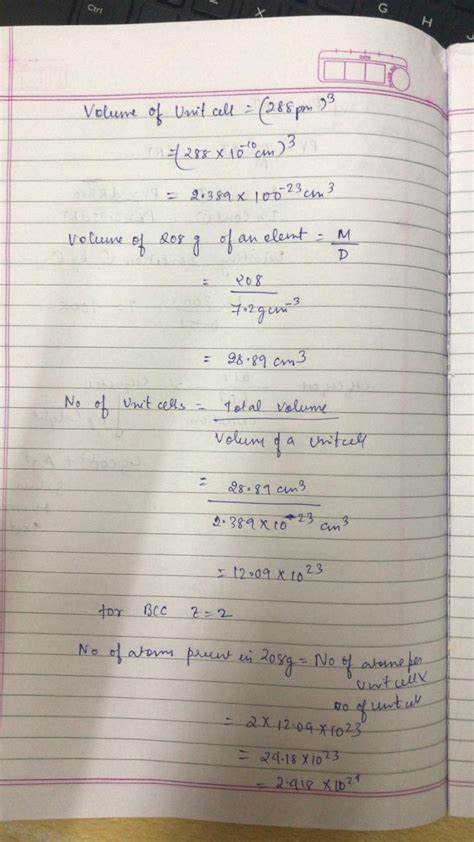 Ctrl
G H
DATE
Volume of Unit cell = (288pm)³
= (288 × 10⁻¹⁰cm)³
= 2.389 × 10⁻²³cm³
Volume of 208 g of an elemt = M/D
= 208/7.2gcm⁻³
= 28.89 cm³
No of Unit cells = Total volume/Volum of a Unitcell
= 28.89 cm³/2.389 × 10⁻²³ cm³
= 12.09 × 10²³
for BCC Z = 2
No of atoms present in 208g = No of atoms per
Unit cell ×
No of unit cell
= 2 × 12.09 × 10²³
= 24.18 × 10²³
= 2.418 × 10²⁴